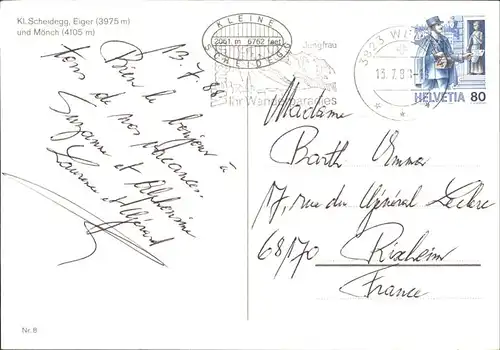 Kl. Scheidegg, Eiger (3975 m)
und Mönch (4105 m)
13.7.88
Bien le bonjour à
tous de nos vacances.
Suzanne et Alphonsine
Laurence et Gérard
KLEINE
2061 m 6762 feet
SCHEIDEGG
Jungfrau
Ihr Wanderparadies
3823
13.7.8
HELVETIA 80
Madame
Barth Emma
17, rue du Général Leclerc
68170 Rixheim
France
Nr. 8